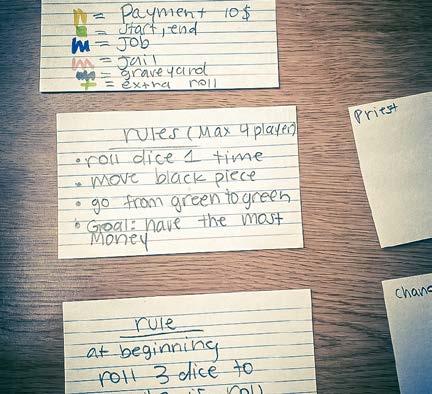 = Payment 10$
= start, end
= Job
= Jail
= graveyard
= extra roll
rules (Max 4 player)
• roll dice 1 time
• move black piece
• go from green to green
• Goal: have the most
Money
Priest
chanc
rule
at beginning
roll 3 dice to
roll